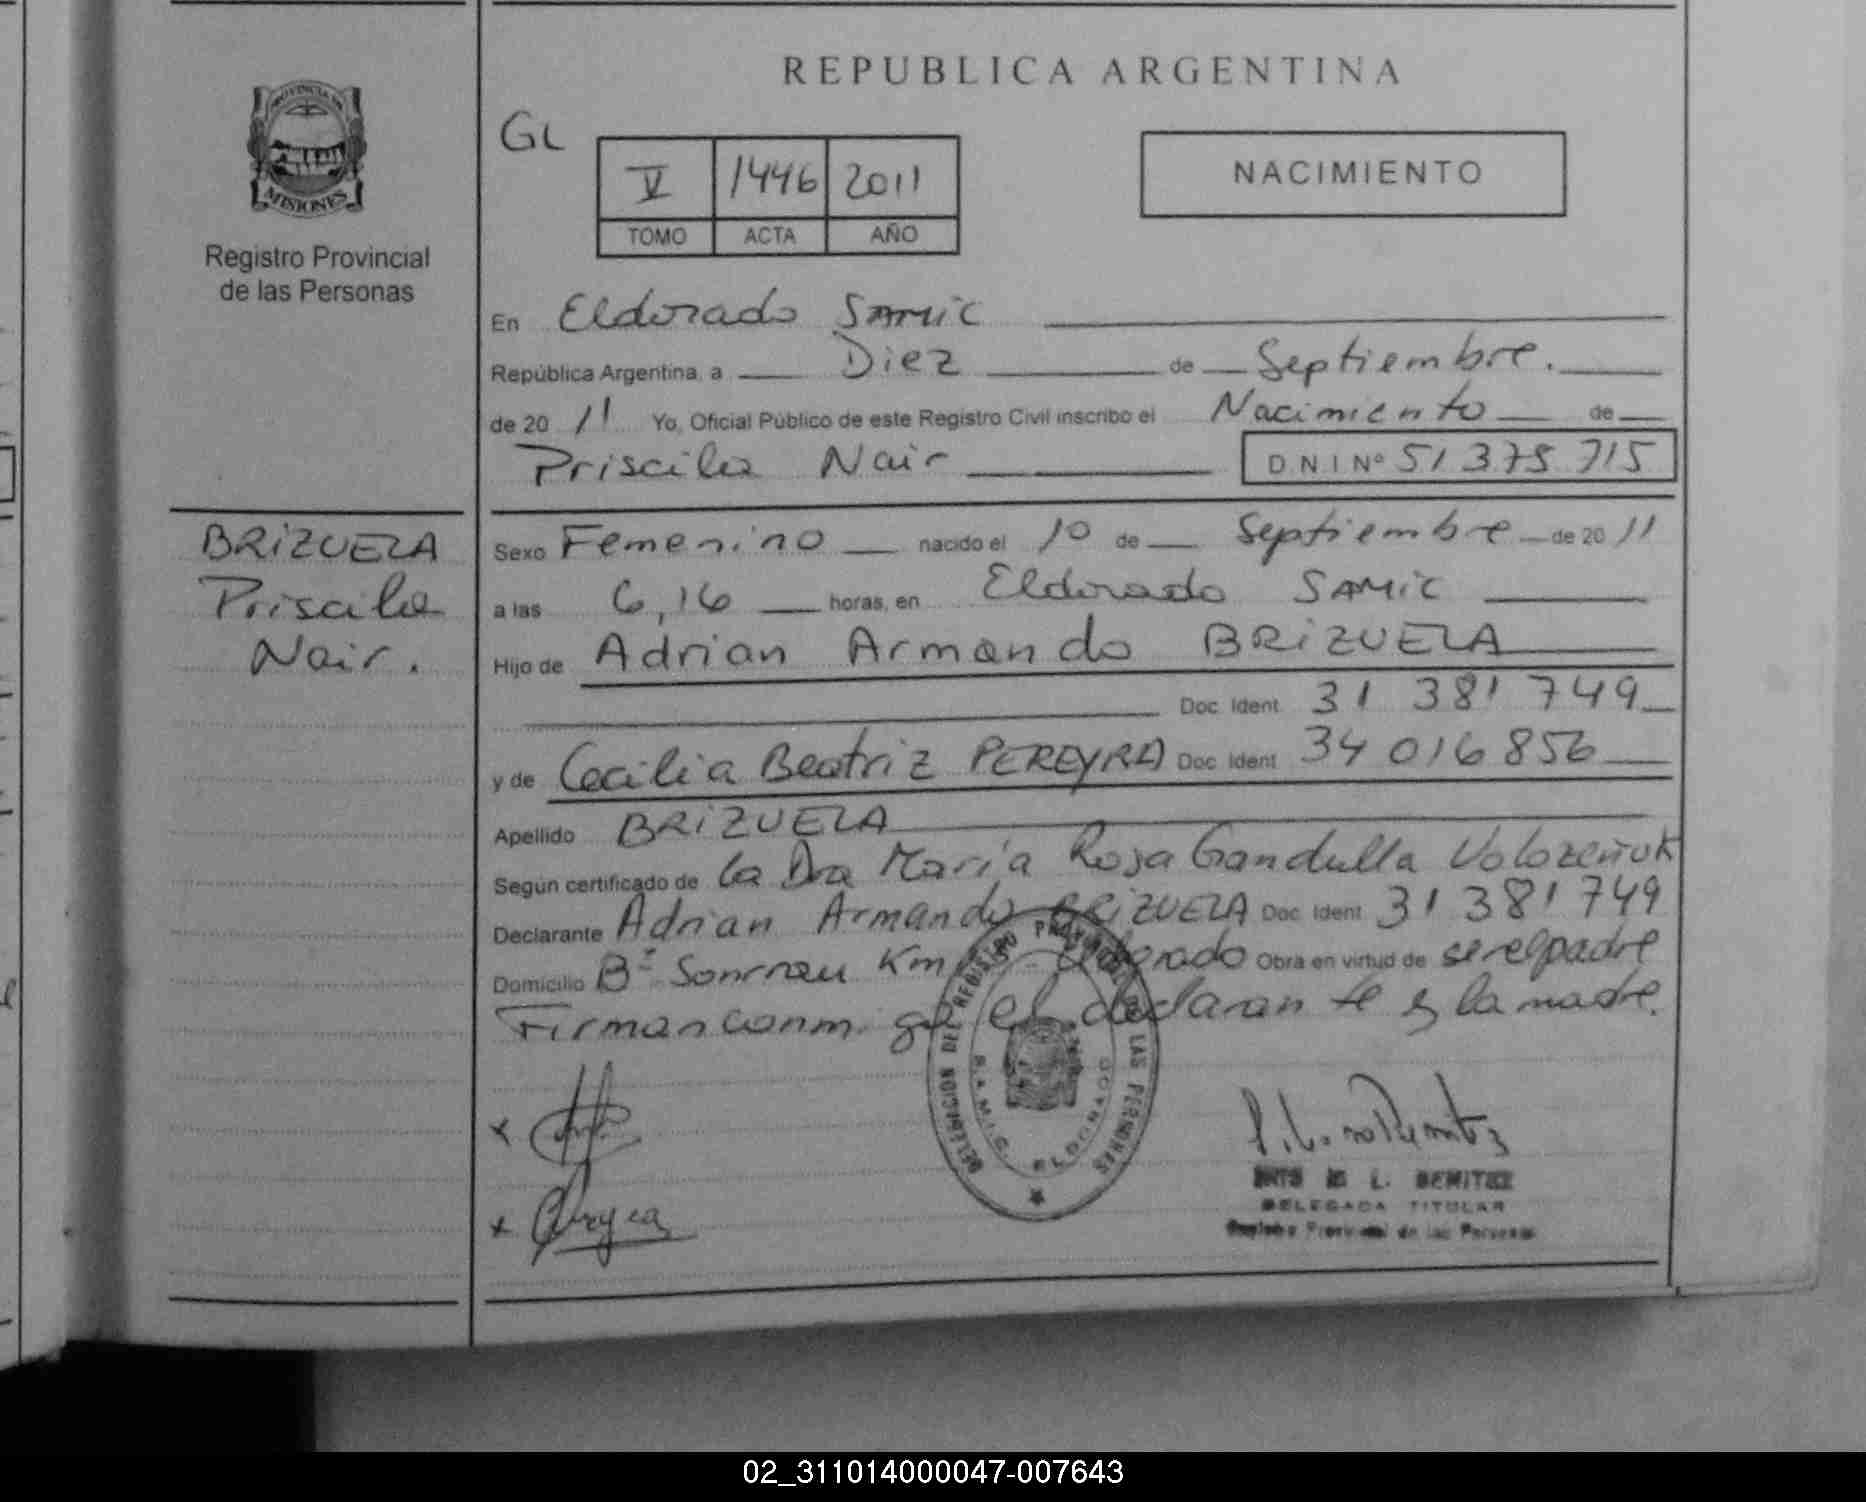 PROVINCIA DE
MISIONES
Registro Provincial
de las Personas
BRIZUELA
Priscila
Nair.
REPUBLICA ARGENTINA
GL
V 1446 2011
TOMO ACTA AÑO
NACIMIENTO
En Eldorado SAMIC
República Argentina, a Diez de Septiembre.
de 20 11 Yo, Oficial Público de este Registro Civil inscribo el Nacimiento de
Priscila Nair D.N.I Nº 51 375 715
Sexo Femenino nacido el 10 de Septiembre de 20 11
a las 6,16 horas, en Eldorado SAMIC
Hijo de Adrian Armando BRIZUELA
Doc. Ident. 31 381 749
y de Cecilia Beatriz PEREYRA Doc. Ident. 34 016 856
Apellido BRIZUELA
Según certificado de la Dra María Rosa Gandulla
Declarante Adrian Armando BRIZUELA Doc. Ident. 31 381 749
Domicilio Bº Km Eldorado Obra en virtud de ser el padre
Firman conmigo el declarante y la madre.
DELEGACION DEL REGISTRO PROVINCIAL DE LAS PERSONAS
S.A.M.I.C. ELDORADO
L. BENITEZ
DELEGADA TITULAR
Registro Provincial de las Personas
02_311014000047-007643